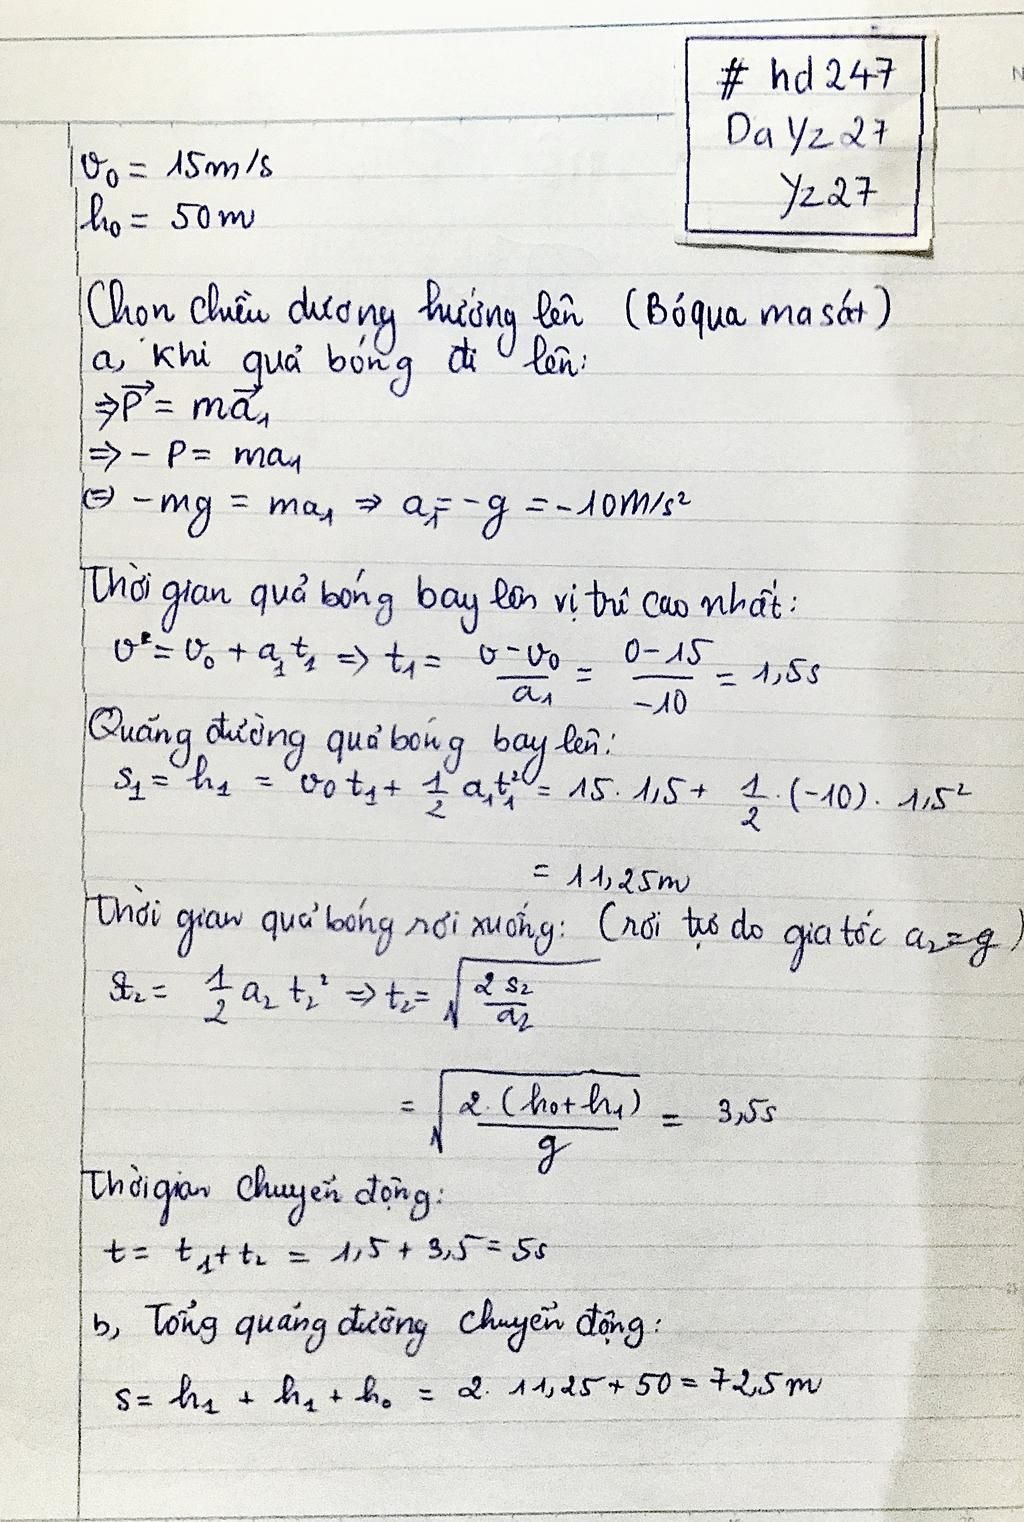 # hd 247
Da Yz 27
Yz 27
v₀ = 15m/s
h₀ = 50m
Chọn chiều dương hướng lên (Bỏ qua ma sát)
a, Khi quả bóng đi lên:
⇒ P⃗ = ma⃗₁
⇒ - P = ma₁
⇔ - mg = ma₁ ⇒ a₁ = - g = - 10m/s²
Thời gian quả bóng bay lên vị trí cao nhất:
v = v₀ + a₁t₁ ⇒ t₁ = (v - v₀)/a₁ = (0 - 15)/-10 = 1,5s
Quãng đường quả bóng bay lên:
s₁ = h₁ = v₀t₁ + 1/2 a₁t₁² = 15. 1,5 + 1/2 . (-10). 1,5²
= 11,25m
Thời gian quả bóng rơi xuống: (rơi tự do gia tốc a₂ = g)
s₂ = 1/2 a₂ t₂² ⇒ t₂ = √(2s₂/a₂)
= √(2.(h₀+h₁)/g) = 3,5s
Thời gian chuyển động:
t = t₁ + t₂ = 1,5 + 3,5 = 5s
b, Tổng quãng đường chuyển động:
s = h₁ + h₁ + h₀ = 2. 11,25 + 50 = 72,5m